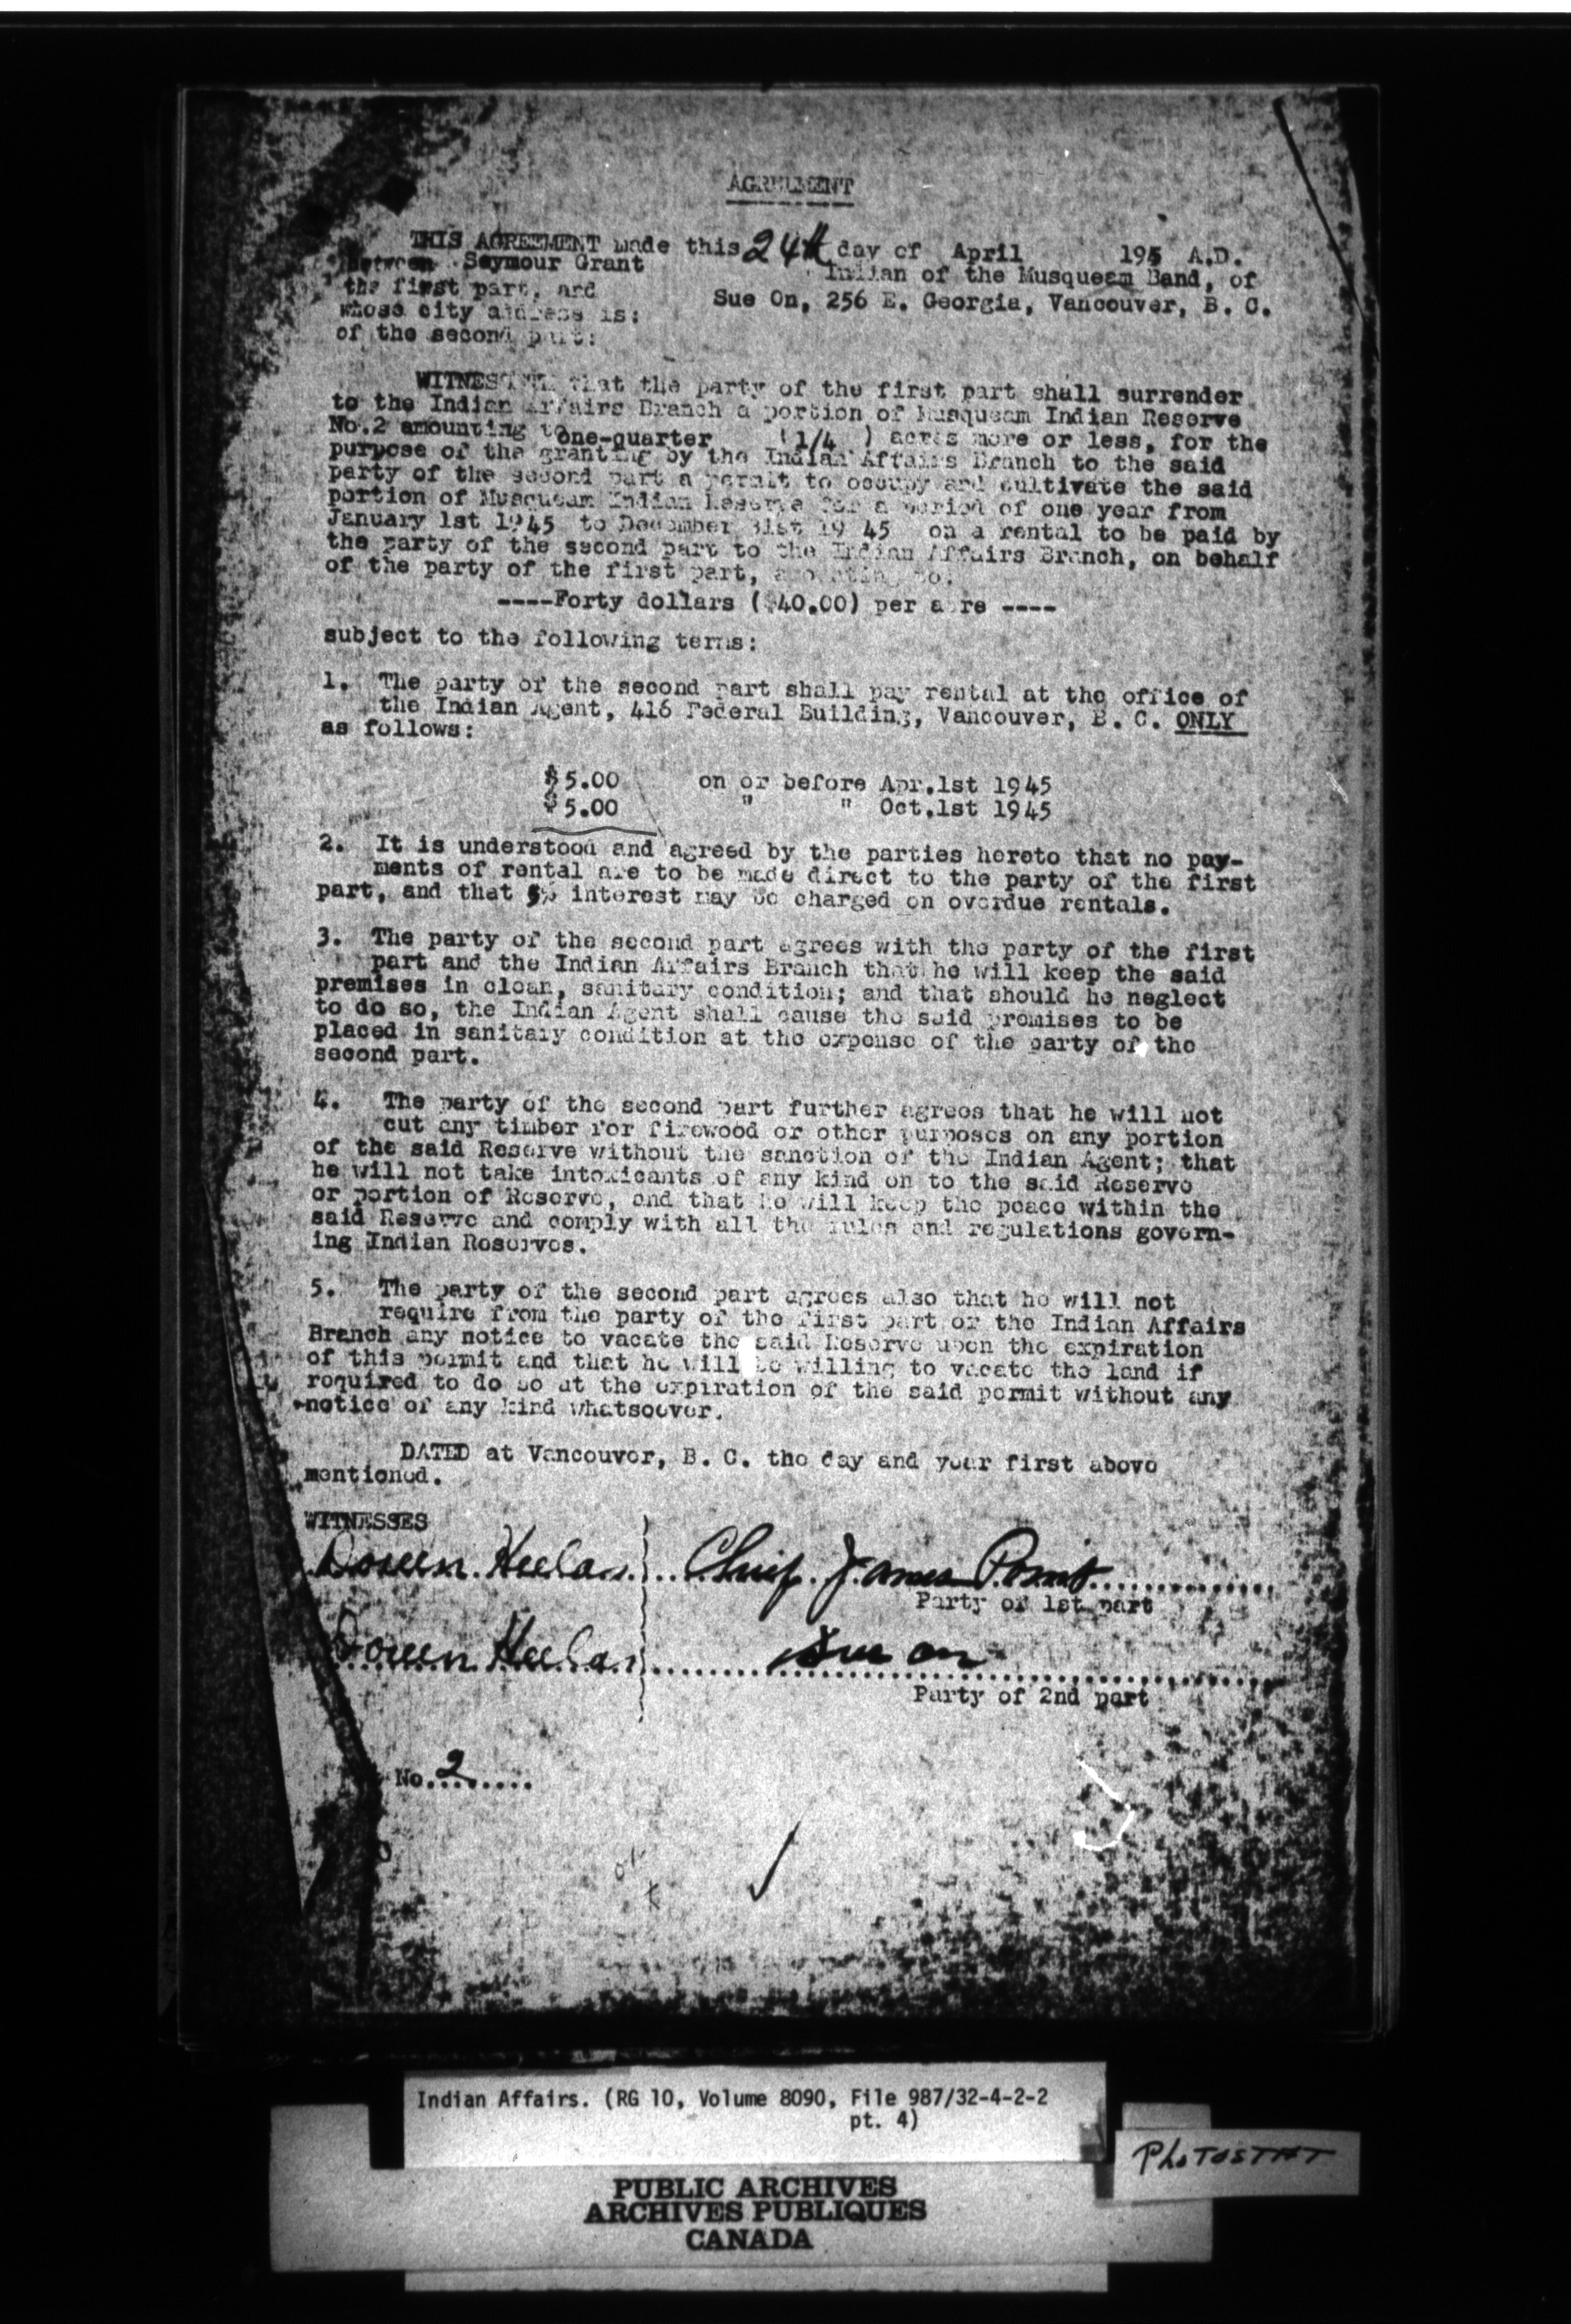 AGREEMENT
THIS AGREEMENT made this 24th day of April 195 A.D.
Between Seymour Grant Indian of the Musqueam Band, of
the first part, and
whose city address is: Sue On, 256 E. Georgia, Vancouver, B. C.
of the second part:
WITNESSETH that the party of the first part shall surrender
to the Indian Affairs Branch a portion of Musqueam Indian Reserve
No.2 amounting to one-quarter (1/4 ) acres more or less, for the
purpose of the granting by the Indian Affairs Branch to the said
party of the second part a permit to occupy and cultivate the said
portion of Musqueam Indian Reserve for a period of one year from
January 1st 1945 to December 31st 19 45 on a rental to be paid by
the party of the second part to the Indian Affairs Branch, on behalf
of the party of the first part, amounting to:
----Forty dollars ($40.00) per acre ----
subject to the following terms:
1. The party of the second part shall pay rental at the office of
the Indian Agent, 416 Federal Building, Vancouver, B. C. ONLY
as follows:
$5.00 on or before Apr.1st 1945
$5.00 " " Oct.1st 1945
2. It is understood and agreed by the parties hereto that no pay-
ments of rental are to be made direct to the party of the first
part, and that 5% interest may be charged on overdue rentals.
3. The party of the second part agrees with the party of the first
part and the Indian Affairs Branch that he will keep the said
premises in clean, sanitary condition; and that should he neglect
to do so, the Indian Agent shall cause the said premises to be
placed in sanitary condition at the expense of the party of the
second part.
4. The party of the second part further agrees that he will not
cut any timber for firewood or other purposes on any portion
of the said Reserve without the sanction of the Indian Agent; that
he will not take intoxicants of any kind on to the said Reserve
or portion of Reserve, and that he will keep the peace within the
said Reserve and comply with all the rules and regulations govern-
ing Indian Reserves.
5. The party of the second part agrees also that he will not
require from the party of the first part or the Indian Affairs
Branch any notice to vacate the said Reserve upon the expiration
of this permit and that he will be willing to vacate the land if
required to do so at the expiration of the said permit without any
notice of any kind whatsoever.
DATED at Vancouver, B. C. the day and year first above
mentioned.
WITNESSES
Doreen Heelan Chief James Point
Party of 1st part
Doreen Heelan Sue on
Party of 2nd part
No. 2
Indian Affairs. (RG 10, Volume 8090, File 987/32-4-2-2
pt. 4)
PHOTOSTAT
PUBLIC ARCHIVES
ARCHIVES PUBLIQUES
CANADA